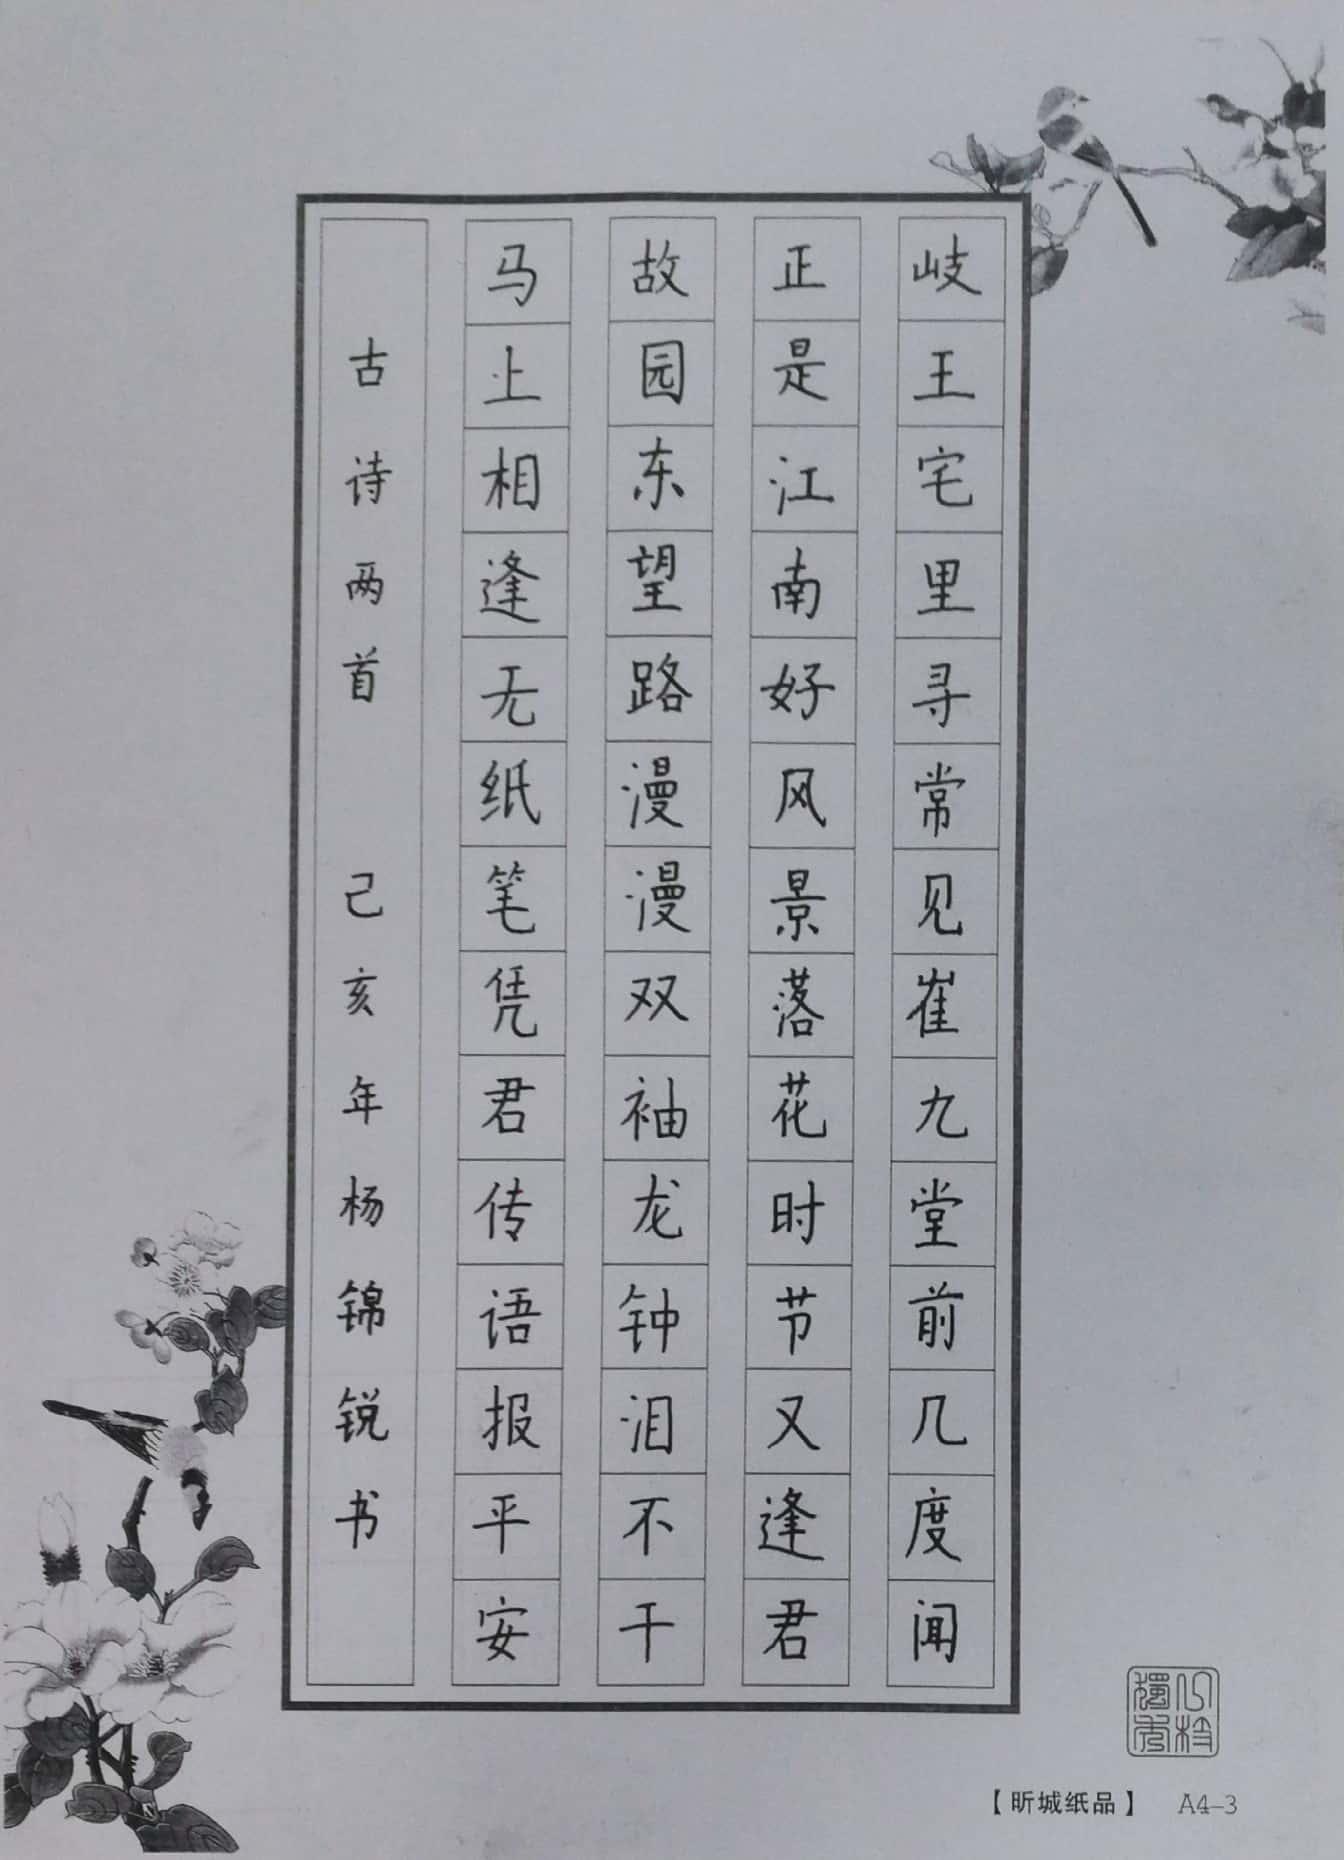 岐王宅里寻常见崔九堂前几度闻
正是江南好风景落花时节又逢君
故园东望路漫漫双袖龙钟泪不干
马上相逢无纸笔凭君传语报平安
古诗两首 己亥年杨锦锐书
【昕城纸品】 A4-3